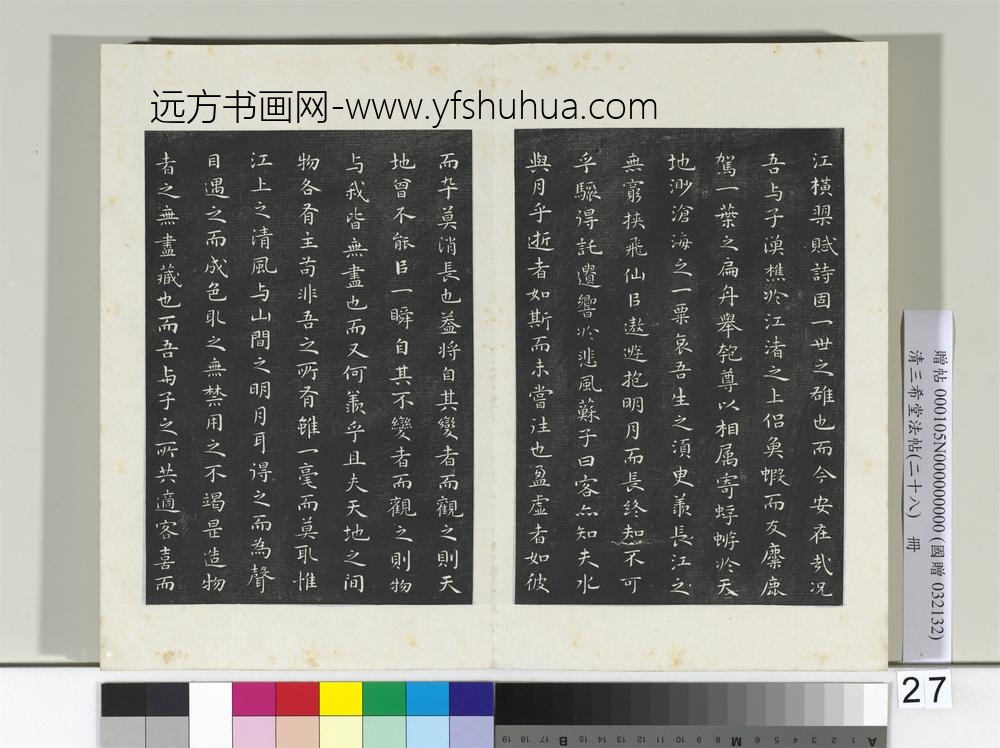 远方书画网-www.yfshuhua.com
江橫槊賦詩固一世之雄也而今安在哉况
吾与子漁樵於江渚之上侣魚蝦而友麋鹿
駕一葉之扁舟舉匏尊以相属寄蜉蝣於天
地渺滄海之一粟哀吾生之須臾羨長江之
無窮挾飛仙㠯遨遊抱明月而長終知不可
乎驟得託遺響於悲風蘇子曰客亦知夫水
與月乎逝者如斯而未嘗往也盈虚者如彼
而卒莫消長也盖將自其變者而觀之則天
地曾不能㠯一瞬自其不變者而觀之則物
与我皆無盡也而又何羨乎且夫天地之间
物各有主苟非吾之所有雖一毫而莫取惟
江上之清風与山間之明月耳得之而為聲
目遇之而成色取之無禁用之不竭是造物
者之無盡藏也而吾与子之所共適客喜而
贈帖 000105N000000000 (國贈 032132)
清三希堂法帖(二十八) 冊
27
19 18 17 16 B 15 14 13 12 11 10 9 8 7 M 6 5 4 3 2 1 A